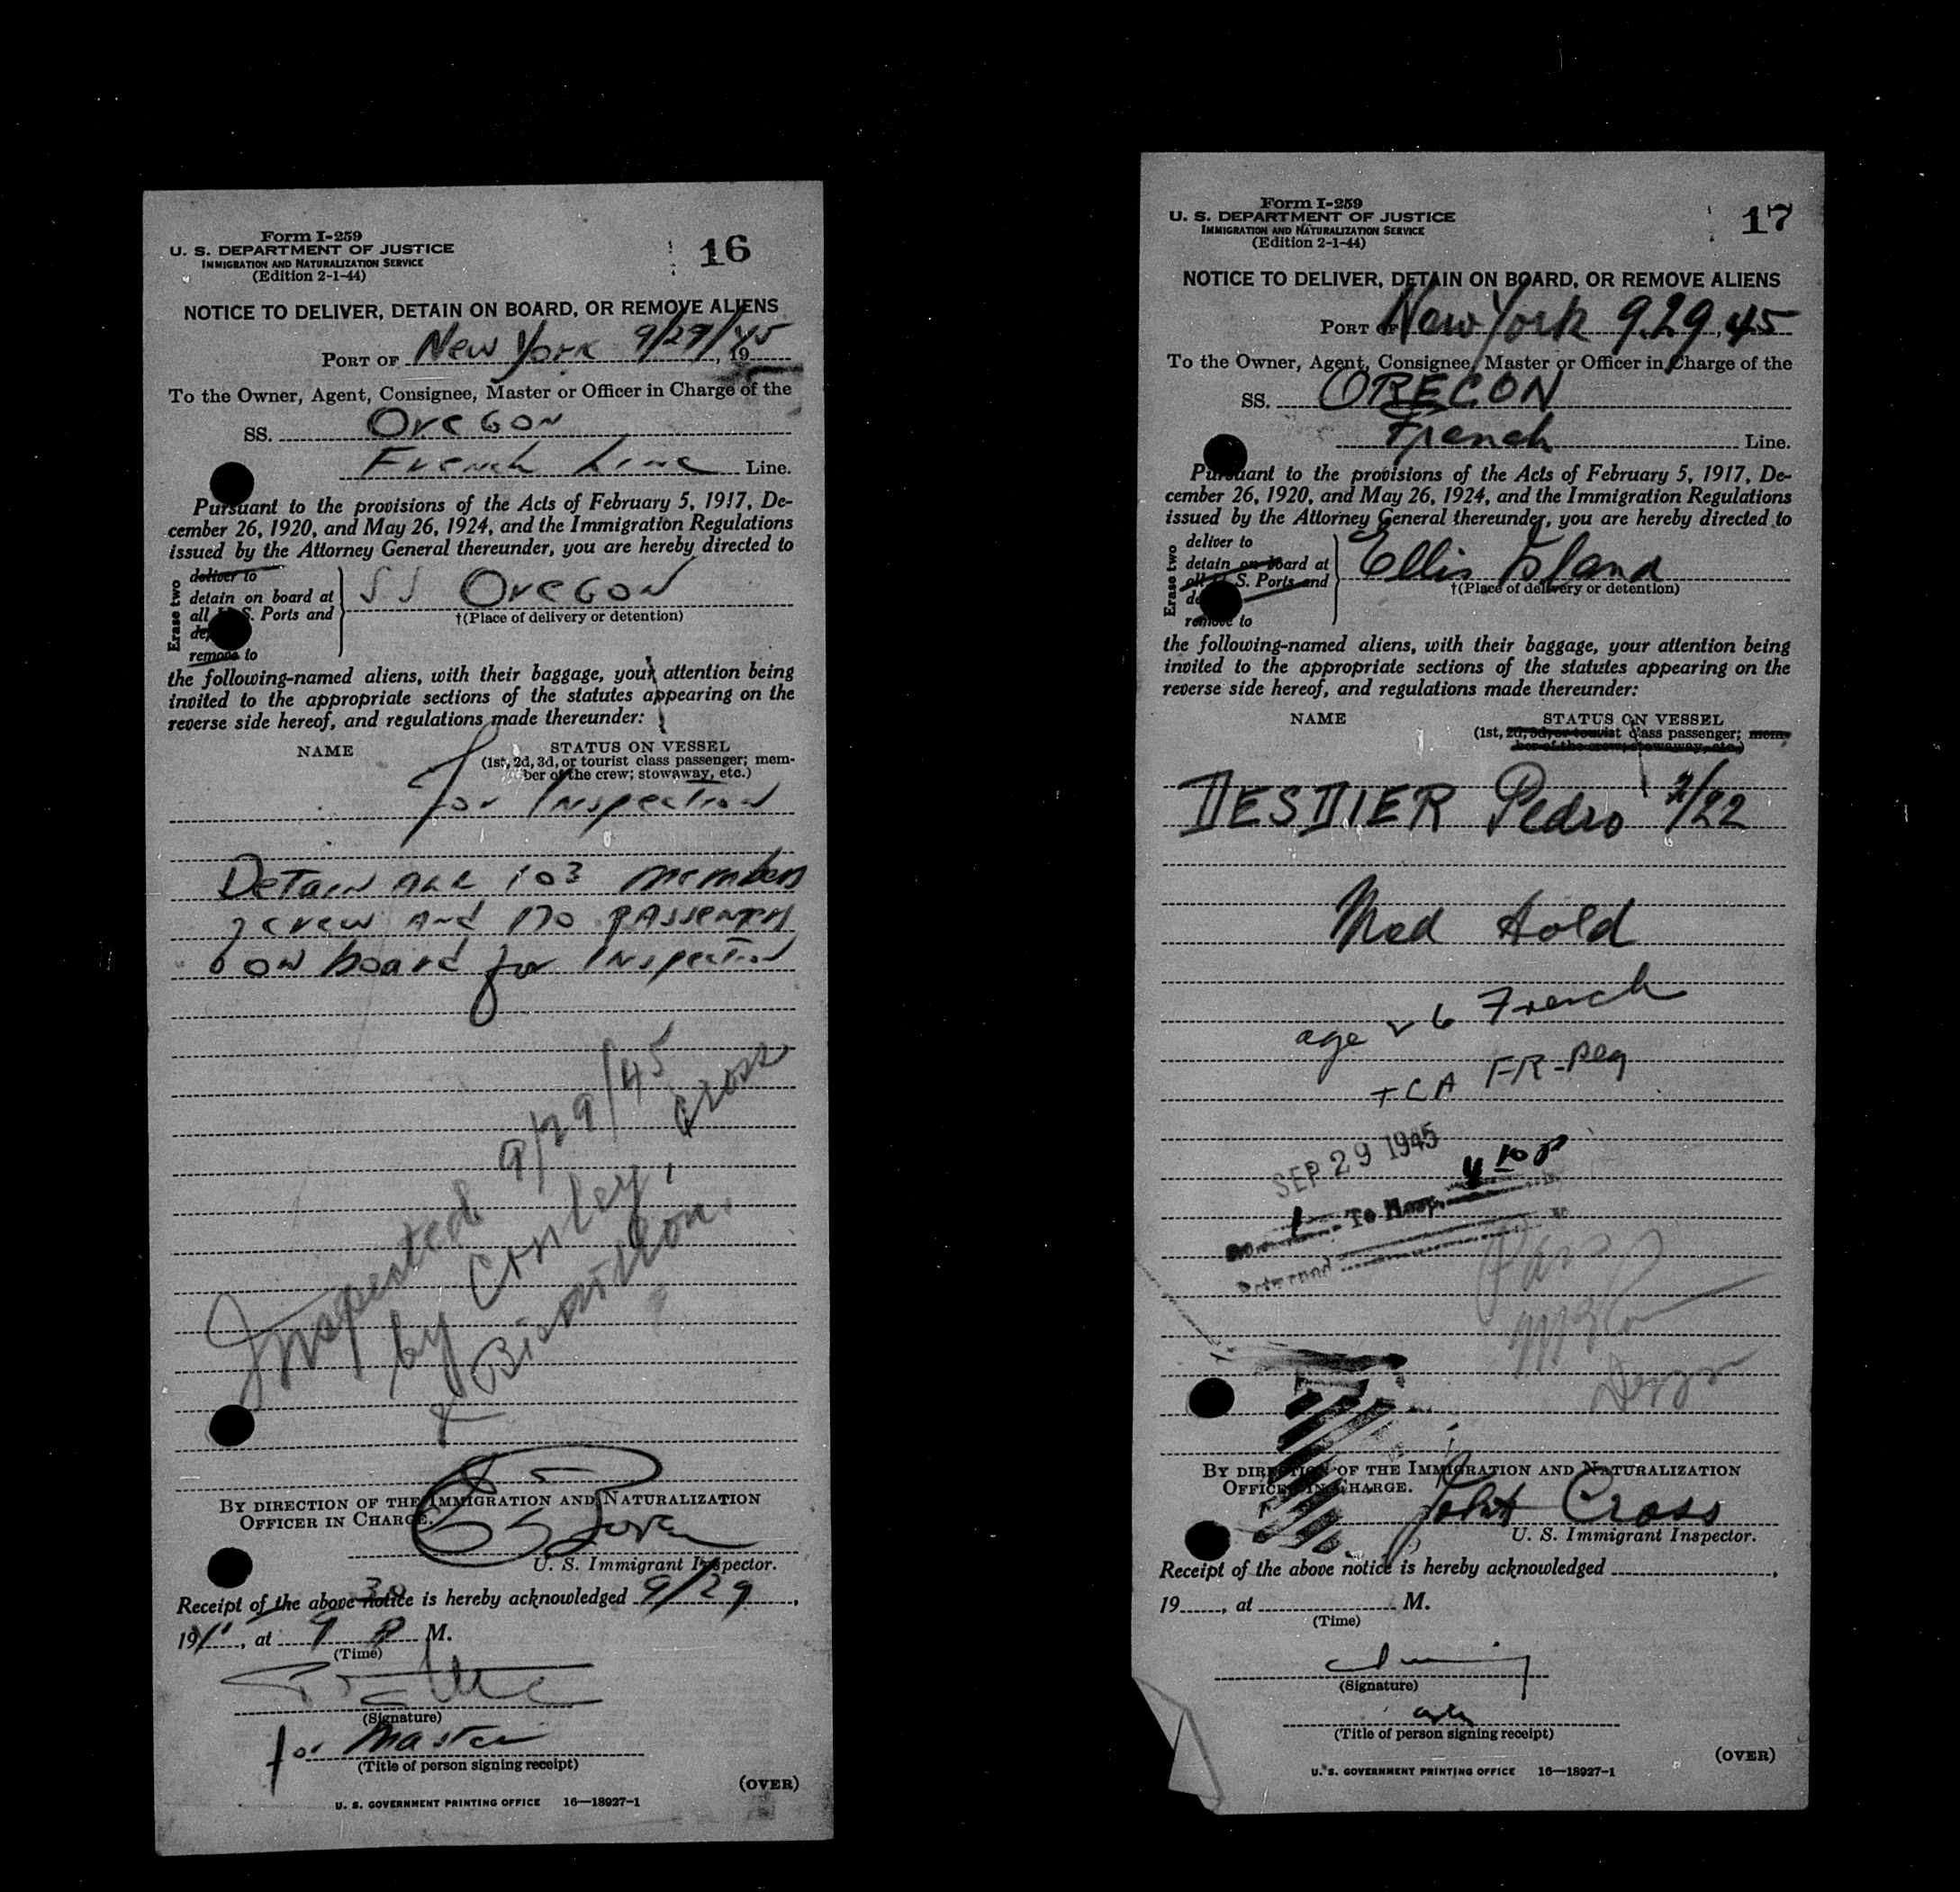 Form I-259
U. S. DEPARTMENT OF JUSTICE
IMMIGRATION AND NATURALIZATION SERVICE
(Edition 2-1-44)
16
NOTICE TO DELIVER, DETAIN ON BOARD, OR REMOVE ALIENS
PORT OF New York 9/29/45, 19
To the Owner, Agent, Consignee, Master or Officer in Charge of the
SS. Oregon
French Line Line.
Pursuant to the provisions of the Acts of February 5, 1917, De-
cember 26, 1920, and May 26, 1924, and the Immigration Regulations
issued by the Attorney General thereunder, you are hereby directed to
Erase two
deliver to
detain on board at
all U. S. Ports and
remove to
SS Oregon
†(Place of delivery or detention)
the following-named aliens, with their baggage, your attention being
invited to the appropriate sections of the statutes appearing on the
reverse side hereof, and regulations made thereunder:
NAME
STATUS ON VESSEL
(1st, 2d, 3d, or tourist class passenger; mem-
ber of the crew; stowaway, etc.)
for Inspection
Detain all 103 members
crew and 170 passengers
on board for Inspection
Inspected 9/29/45
by Conley, Cross
&
BY DIRECTION OF THE IMMIGRATION AND NATURALIZATION
OFFICER IN CHARGE.
U. S. Immigrant Inspector.
Receipt of the above notice is hereby acknowledged 9/29,
19, at 9 30 P M.
(Time)
(Signature)
for Master
(Title of person signing receipt)
(OVER)
U. S. GOVERNMENT PRINTING OFFICE 16—18927-1
Form I-259
U. S. DEPARTMENT OF JUSTICE
IMMIGRATION AND NATURALIZATION SERVICE
(Edition 2-1-44)
17
NOTICE TO DELIVER, DETAIN ON BOARD, OR REMOVE ALIENS
PORT OF New York 9.29, 45
To the Owner, Agent, Consignee, Master or Officer in Charge of the
SS. OREGON
French Line.
Pursuant to the provisions of the Acts of February 5, 1917, De-
cember 26, 1920, and May 26, 1924, and the Immigration Regulations
issued by the Attorney General thereunder, you are hereby directed to
Erase two
deliver to
detain on board at
all U. S. Ports and
remove to
Ellis Island
†(Place of delivery or detention)
the following-named aliens, with their baggage, your attention being
invited to the appropriate sections of the statutes appearing on the
reverse side hereof, and regulations made thereunder:
NAME
STATUS ON VESSEL
(1st, 2d, 3d, or tourist class passenger; mem-
ber of the crew; stowaway, etc.)
DESDIER Pedro 2/22
Med Hold
age 26 French
SEP 29 1945
1 To Hosp. 4 10 P
Returned
BY DIRECTION OF THE IMMIGRATION AND NATURALIZATION
OFFICER IN CHARGE.
John Cross
U. S. Immigrant Inspector.
Receipt of the above notice is hereby acknowledged ,
19, at M.
(Time)
(Signature)
(Title of person signing receipt)
(OVER)
U. S. GOVERNMENT PRINTING OFFICE 16—18927-1